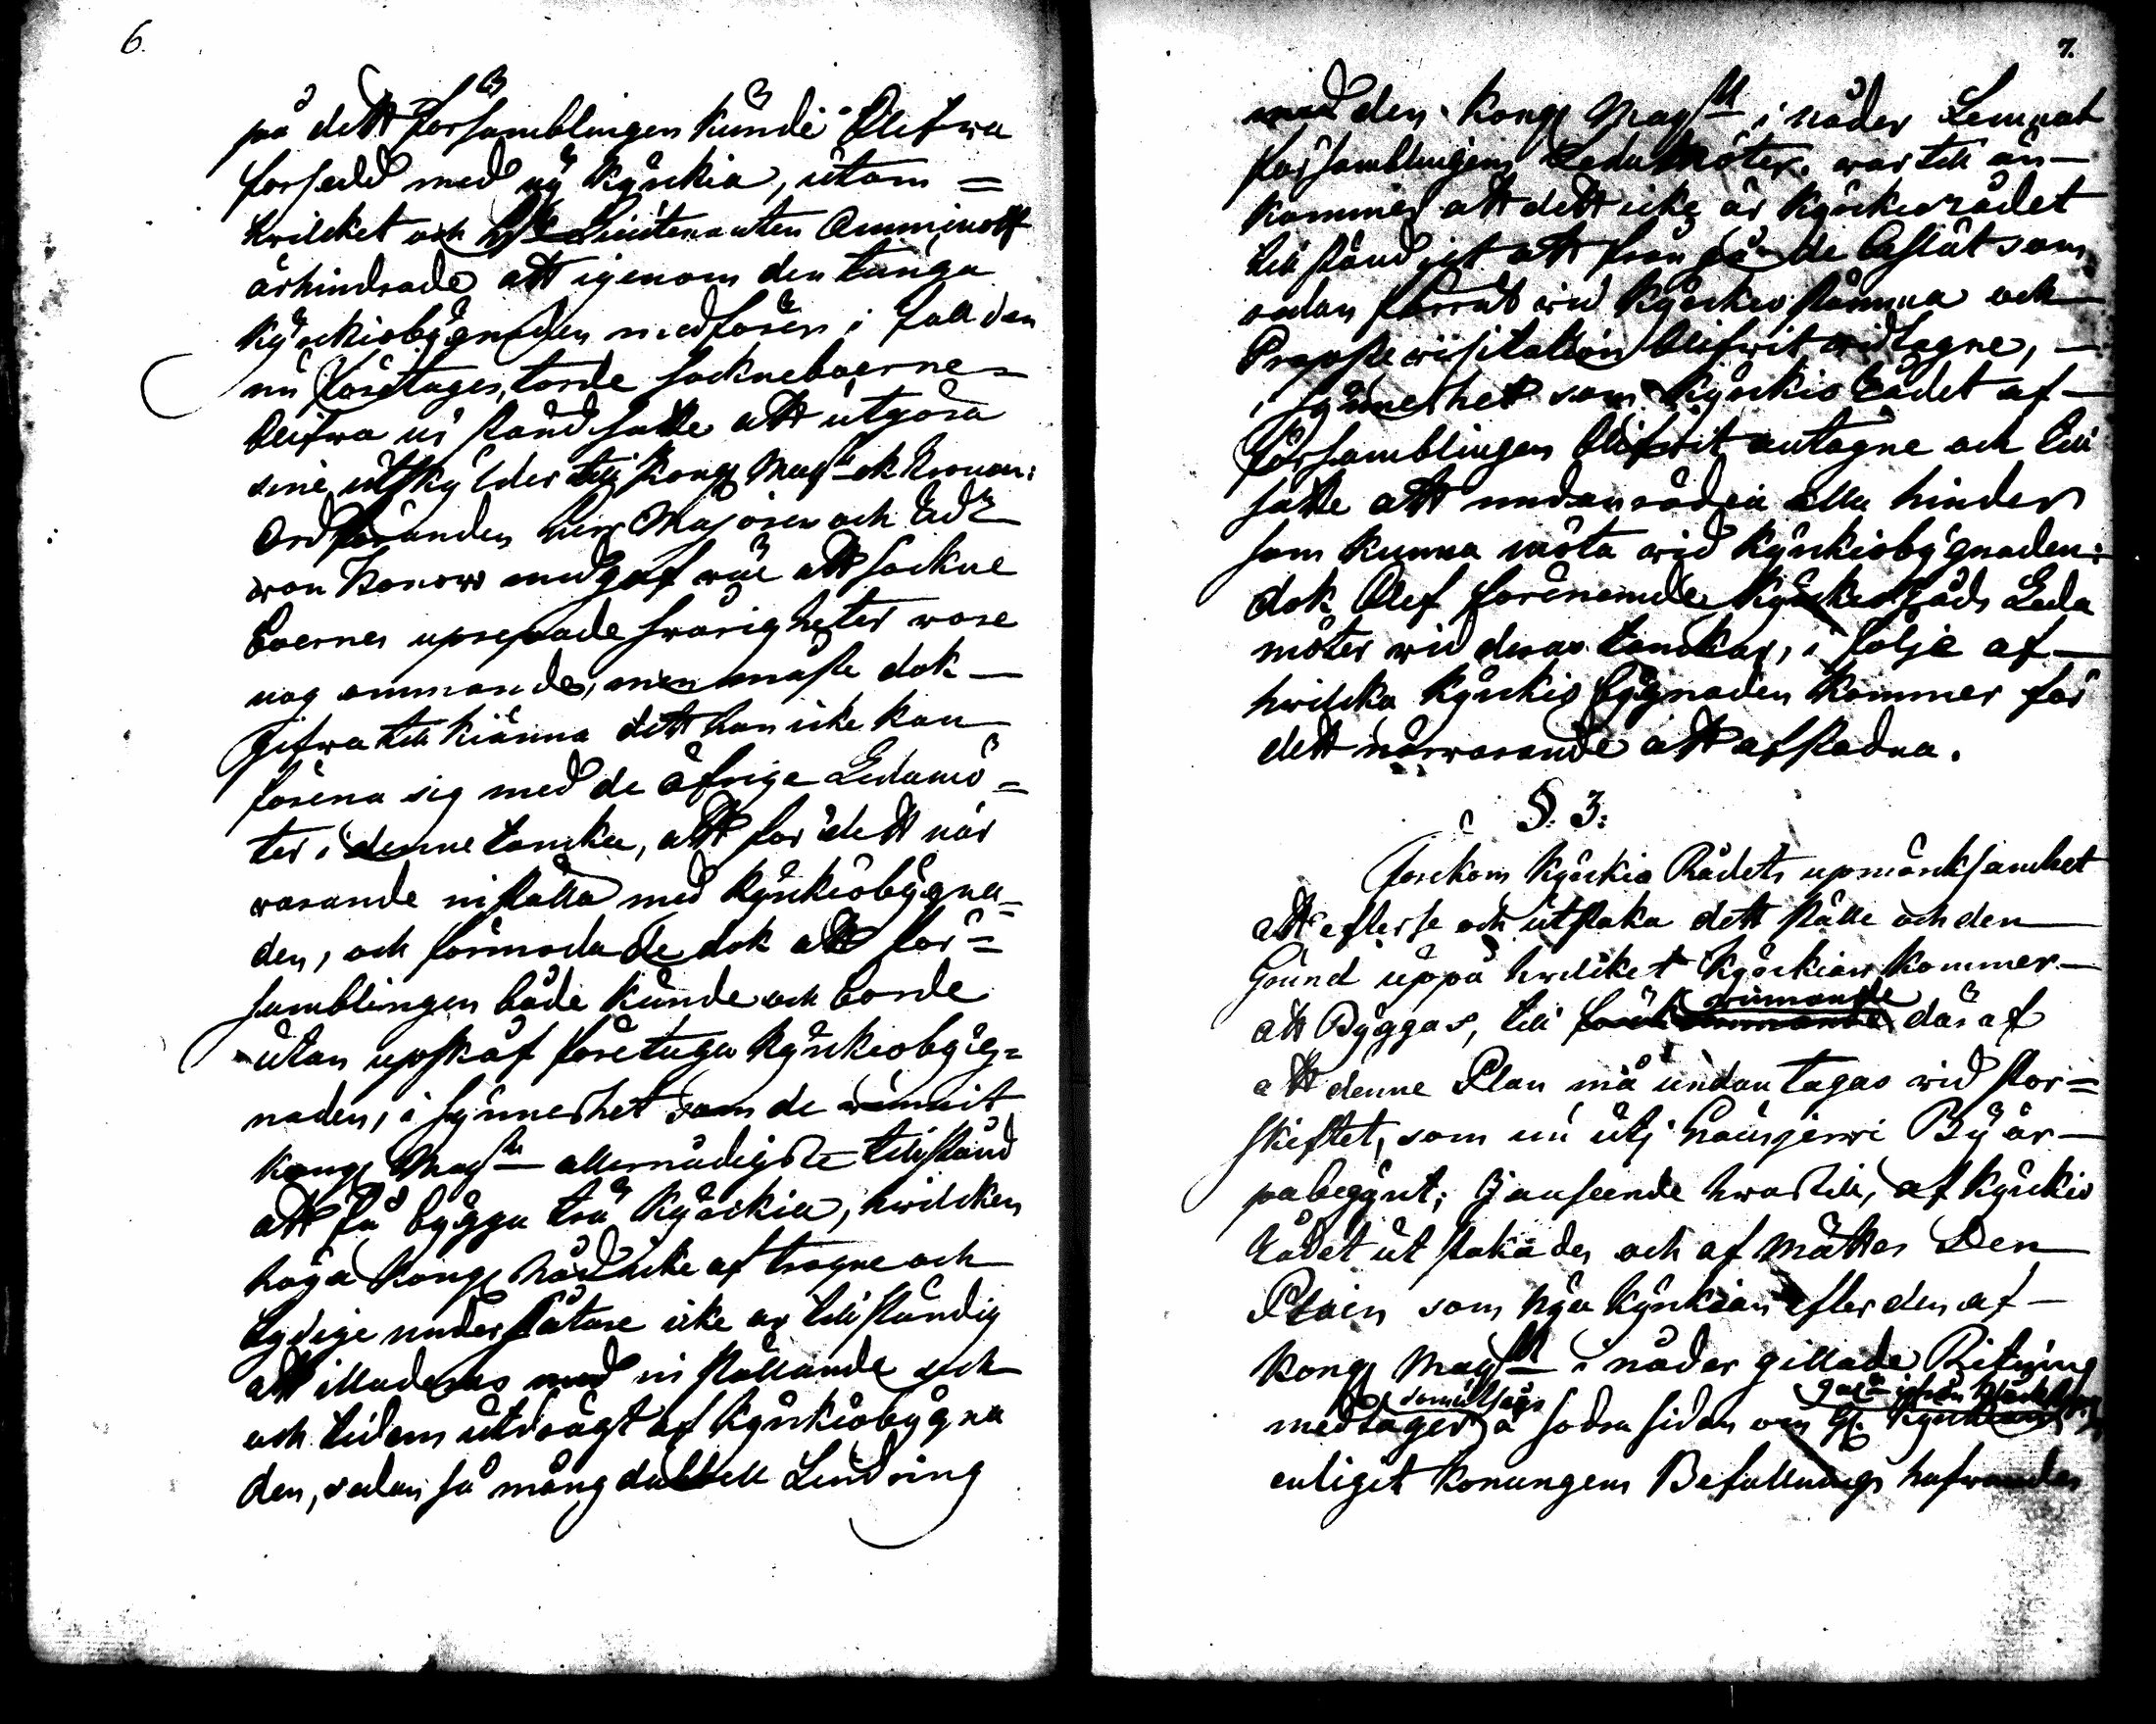 6.
på dett Församblingen kunde blifwa
försedd med ny kyrkia, utom =
hwilcket och H:r Lieutenanten Amminoff
ärhindrade att igenom den tunga
kyrkiobygnaden medförer i fall den
nu företages, torde sockneboerne
blifwa ur stånd satte att utgöra
sine utskylder till Kongl Maj:tt ok Kronan:
Ordföranden herr Majoren och Ridd:
von Konow medgaf wäl att sockne
boernes upsepade swårigheter wore
nog ömmande, men måste dok
gifwa till kiänna dett han icke kan
förena sig med de öfrige Ledamö =
ter i denne tancka, att för dett när
warande inställa med kyrkiobygna =
den, och förmodade dok att För =
samblingen både kunde och borde
utan upskåf företaga kyrkiobyg =
naden, i synnerhet som de wunnit
Kongl Maj:tts allernådigste tillstånd
att få bygga trä kyrckia, hwilcken
höga Kongl Nåd icke af trogne och
lydige undersåtare icke är tillständig
att illuderas med inställande och
och tidens utdrägt af kyrkiobygna
den, sedan så mång dubbell Lindring
7.
med den Kongl Maj:tt i nåder Lemnat
församblingens Ledamöter. war till än
kommer att dett icke är kyrkiorådet
tillständigt att från gå de beslut som
redan förrut wid kyrckio stämma och
Prosste wisitation blifwit widtagne,
i synnerhet som kyrkio Rådet af
Församblingen blifwit antagne och till
satte att undanrödia alla hinder
som kunna möta wid kyrkiobygnaden:
dok blef förenemde kyrckio Råds Leda
möter wid deras tanckar, i följe af
hwilcka kyrkio bygnaden kommer för
dett närwarande att afstadna.
§. 3:
Förekom kyrkio Rådets upmärksamhet
att efterse och utstaka dett ställe och den
Grund uppå hwilcket kyrckian kommer
att Byggas, till
däraf
att denne Plan må undantagas wid stor =
skiftet, som nu uti Byär
påbegynt; I anseende hwartill, af kyrkio
Rådet ut stakades och af mättes Den
Platen som nya kyrkian efter den af
Kongl Maj:tt i nåder gillade Ritning
medtager å södra sidan om gl. kyrckian
enligit Konungens Befallnings hafwandes